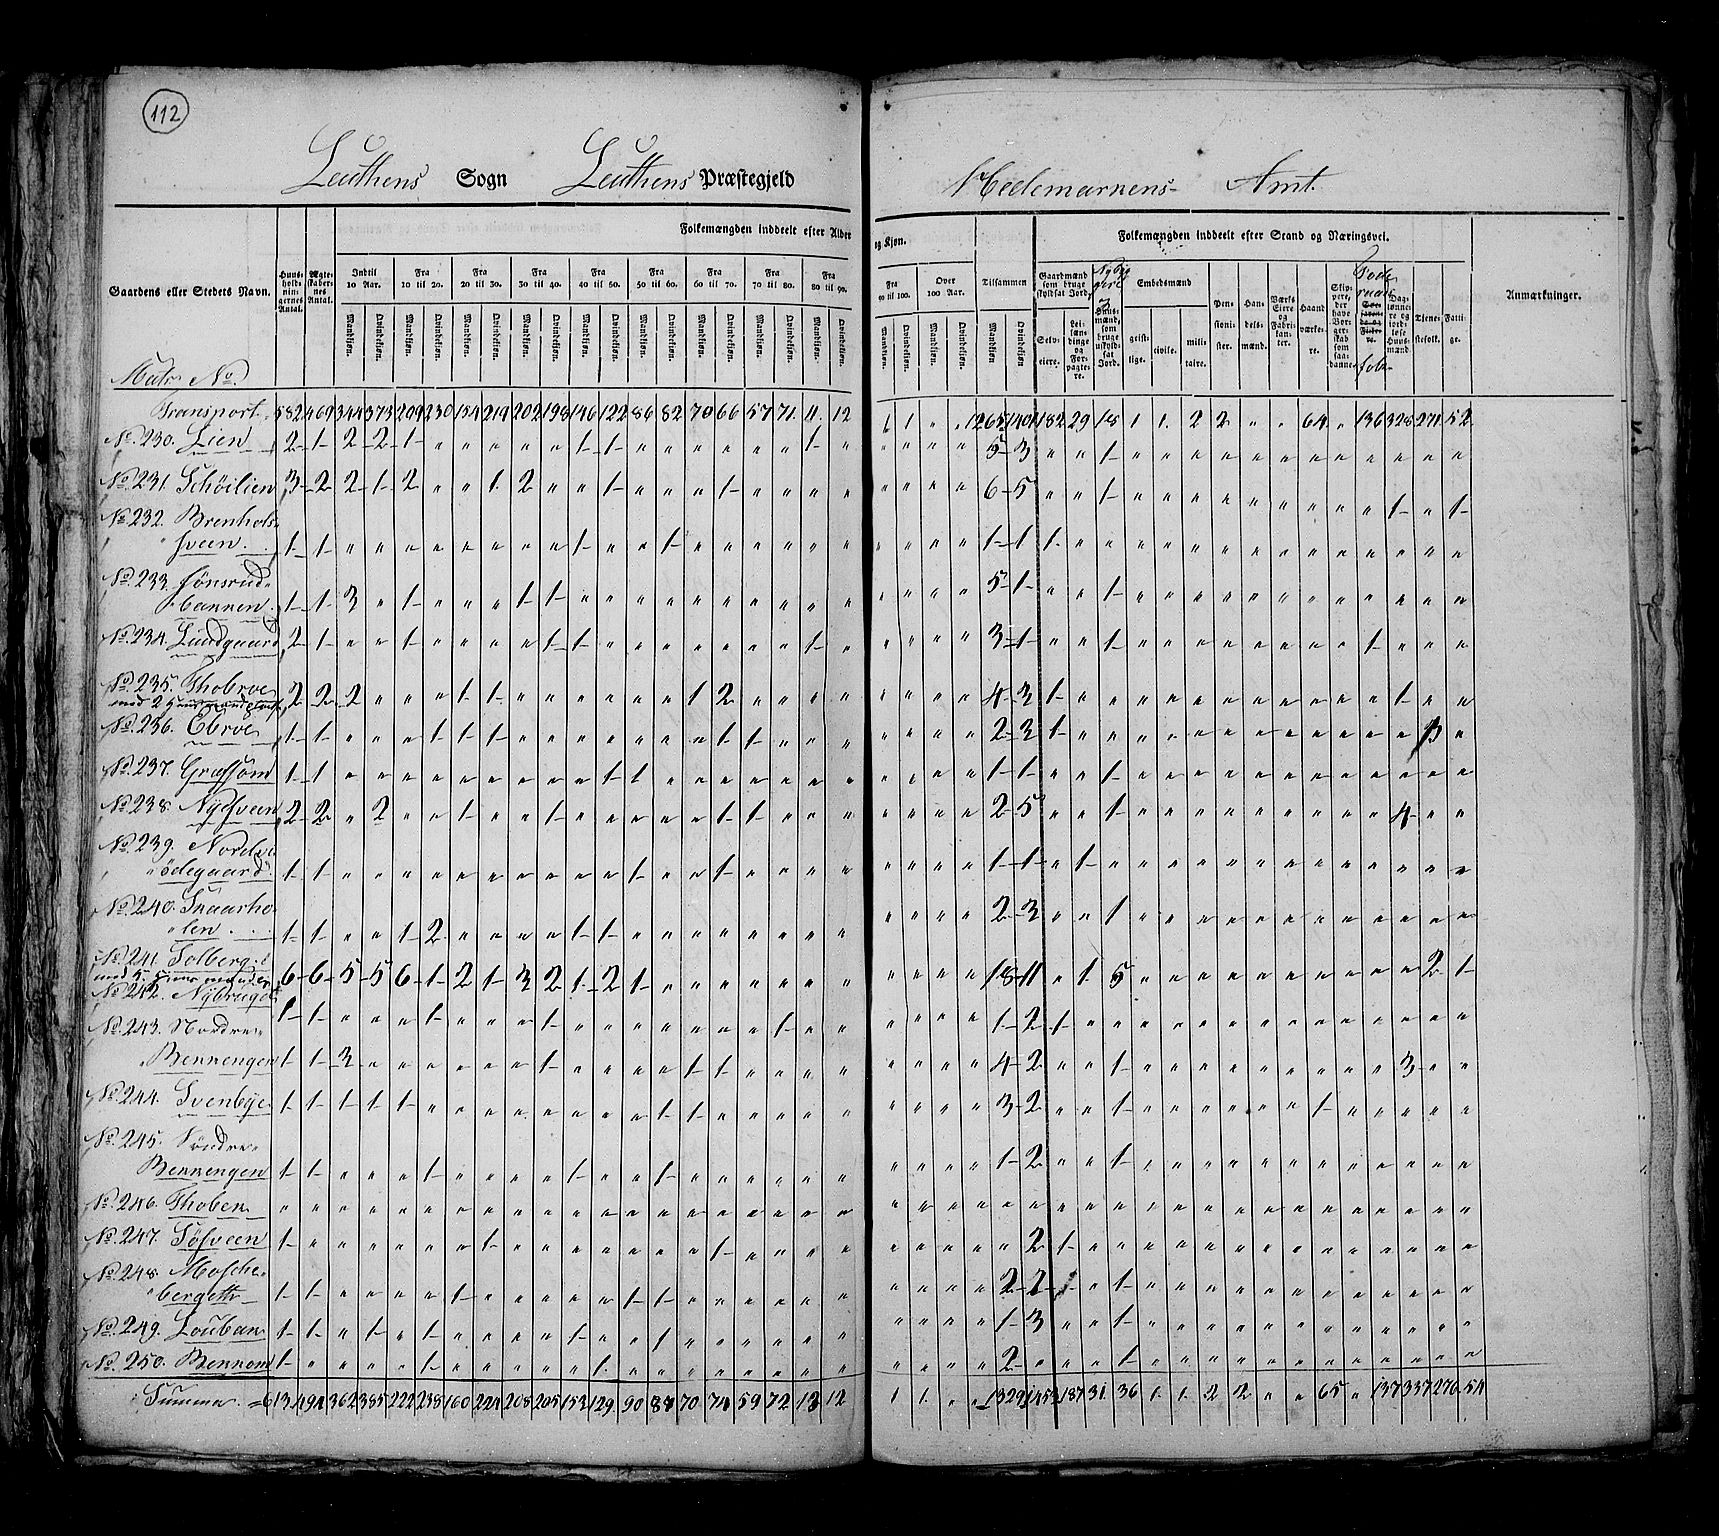 112
Leuthens Sogn Leuthens Præstegjeld Hedemarkens Amt.
Folkemængden inddeelt efter Alder og Kjøn. Folkemængden inddeelt efter Stand og Næringsvei.
Gaardens eller Stedets Navn. Huusholdningernes Antal. Ægteskabernes Antal. Indtil 10 Aar. Fra 10 til 20. Fra 20 til 30. Fra 30 til 40. Fra 40 til 50. Fra 50 til 60. Fra 60 til 70. Fra 70 til 80. Fra 80 til 90. Fra 90 til 100. Over 100 Aar. Tilsammen Gaardmænd som bruge skyldsat Jord. Embedsmænd Pensionister. Handelsmænd. Værks Eiere og Fabrikanter. Haandværkere. Tjenestefolk. Fattige. Anmærkninger.
Mandkjøn. Qvindekjøn. Selveiere. Leilændinge og Forpagtere. geistlige. civile. militaire.
Matr No.
Transport. 582 469 344 373 209 230 154 219 202 198 146 122 86 82 70 66 57 71 11. 12 1 1 " " 1265 1401 182 29 18 1 1. 2 2 " " 64 " 136 328 271 52
No. 230. Lien 2 1 2 2 1 " " " " " 1 1 " " " " " " 1 " " " " " 5 3 " " 1 " " " " " " " " " " " "
No. 231. Schöilien 3 2 2 1 2 " " 1. 2 " " 1 " " " 1 " " " " " " " " 6 5 " " 1 " " " " " " " " " 1 " 1
No. 232. Brenhols
sveen. 1 1 " " " " " " " " 1 " " 1 " " " " " " " " " " 1 1 1. " " " " " " " " " " " " " "
No. 233. Jönsrud
bannen. 1 1 3 " 1 " " " 1 1 " " " " " " " " " " " " " " 5 1 " " 1 " " " " " " " " " " " "
No. 234. Lundgaard 2 1 " " 1 " " " " 1 1 " " " " " " " 1 " " " " " 3 1 " " 1 " " " " " " " " 1 " " "
No. 235. Thobroe 2 2 2 " " " 1 1 " " " " " " 1 2 " " " " " " " " 4 3 1 " " " " " " " " " " " 1 " "
No. 236. Ebroe 1 1 " " " 1 1 1 " " " " " " " 1 1 " " " " " " " 2 3 1 " " " " " " " " " " " " 3 "
No. 237. Græsjom 1 1 " " " " " " " " " 1 1 " " " " " " " " " " " 1 1 " " 1 " " " " " " " " " " " "
No. 238. Nyesveen 2 2 " 2 " " 1 " " 1 " " " " " 1 1 " " " " " " " 2 5 " " 1 " " " " " " " " " 4 " "
No. 239. Nordre
ödegaard. 1 1 " " " " " " " " " " 1 " " 1 " " " " " " " " 1 1 " 1 " " " " " " " " " " " " "
No. 240. Snaarho
len . . . 1 1 " " 1 2 " " " " 1 1 " " " " " " " " " " " " 2 3 " " 1 " " " " " " " " " " " "
No. 241. Solberg 6 6 5 5 6 1 2 1 3 2 1 2 1 " " " " " " " " " " " 18 11 " 1. 5 " " " " " " " " " " 2 1
No. 242. Nÿbruget 1 1 " " " 1 " " " 1 " " " " " " " 1 " " " " " " 1 2 1 " " " " " " " " " " " " " "
No. 243. Nordre
Bennengen 1 1 3 " " " " " " 1 " " " " 1 1 " " " " " " " " 4 2 " " 1 " " " " " " " " " 3 " "
No. 244. Svenbÿe 1 1 1 1 1 " " " " " " " " 1 1 " " " " " " " " " 3 2 " " 1 " " " " " " 1 " " " " "
No. 245. Söndre
Bennengen 1 1 " " " 1 " " " " 1 " " 1 " " " " " " " " " " 1 2 " " 1 " " " " " " " " " " " "
No. 246. Thoben " " " " " " " " " " " " " " " " " " " " " " " " " " " " " " " " " " " " " " " " "
No. 247. Söfveen 1 " " " " " " 1 " " " " " " " 1 " " " " " " " " " 2 1 " " " " " " " " " " " " " "
No. 248. Mosche
bergeth 1 1 " " " " 1 " " " " " 1 1 " " " " " " " " " " 2 2 " " 1 " " " " " " " " " " " "
No. 249. Louban 1 1 " 1 " 1 " " " " 1 " " 1 " " " " " " " " " " 1 3 " " 1 " " " " " " " " " " " "
No. 250. Bennom 1 " " " " 1 " " " " " 1. " " " " " " " " " " " " 2 " " " 1 " " " " " " " " " " " "
Summa 613 494 362 385 222 238 160 224 208 205 152 129 90 87 70 74 59 72 13 12 1 1. " " 1329 1453 187 31 36 1. 1. 2 2 " " 65 " 137 337 276 54